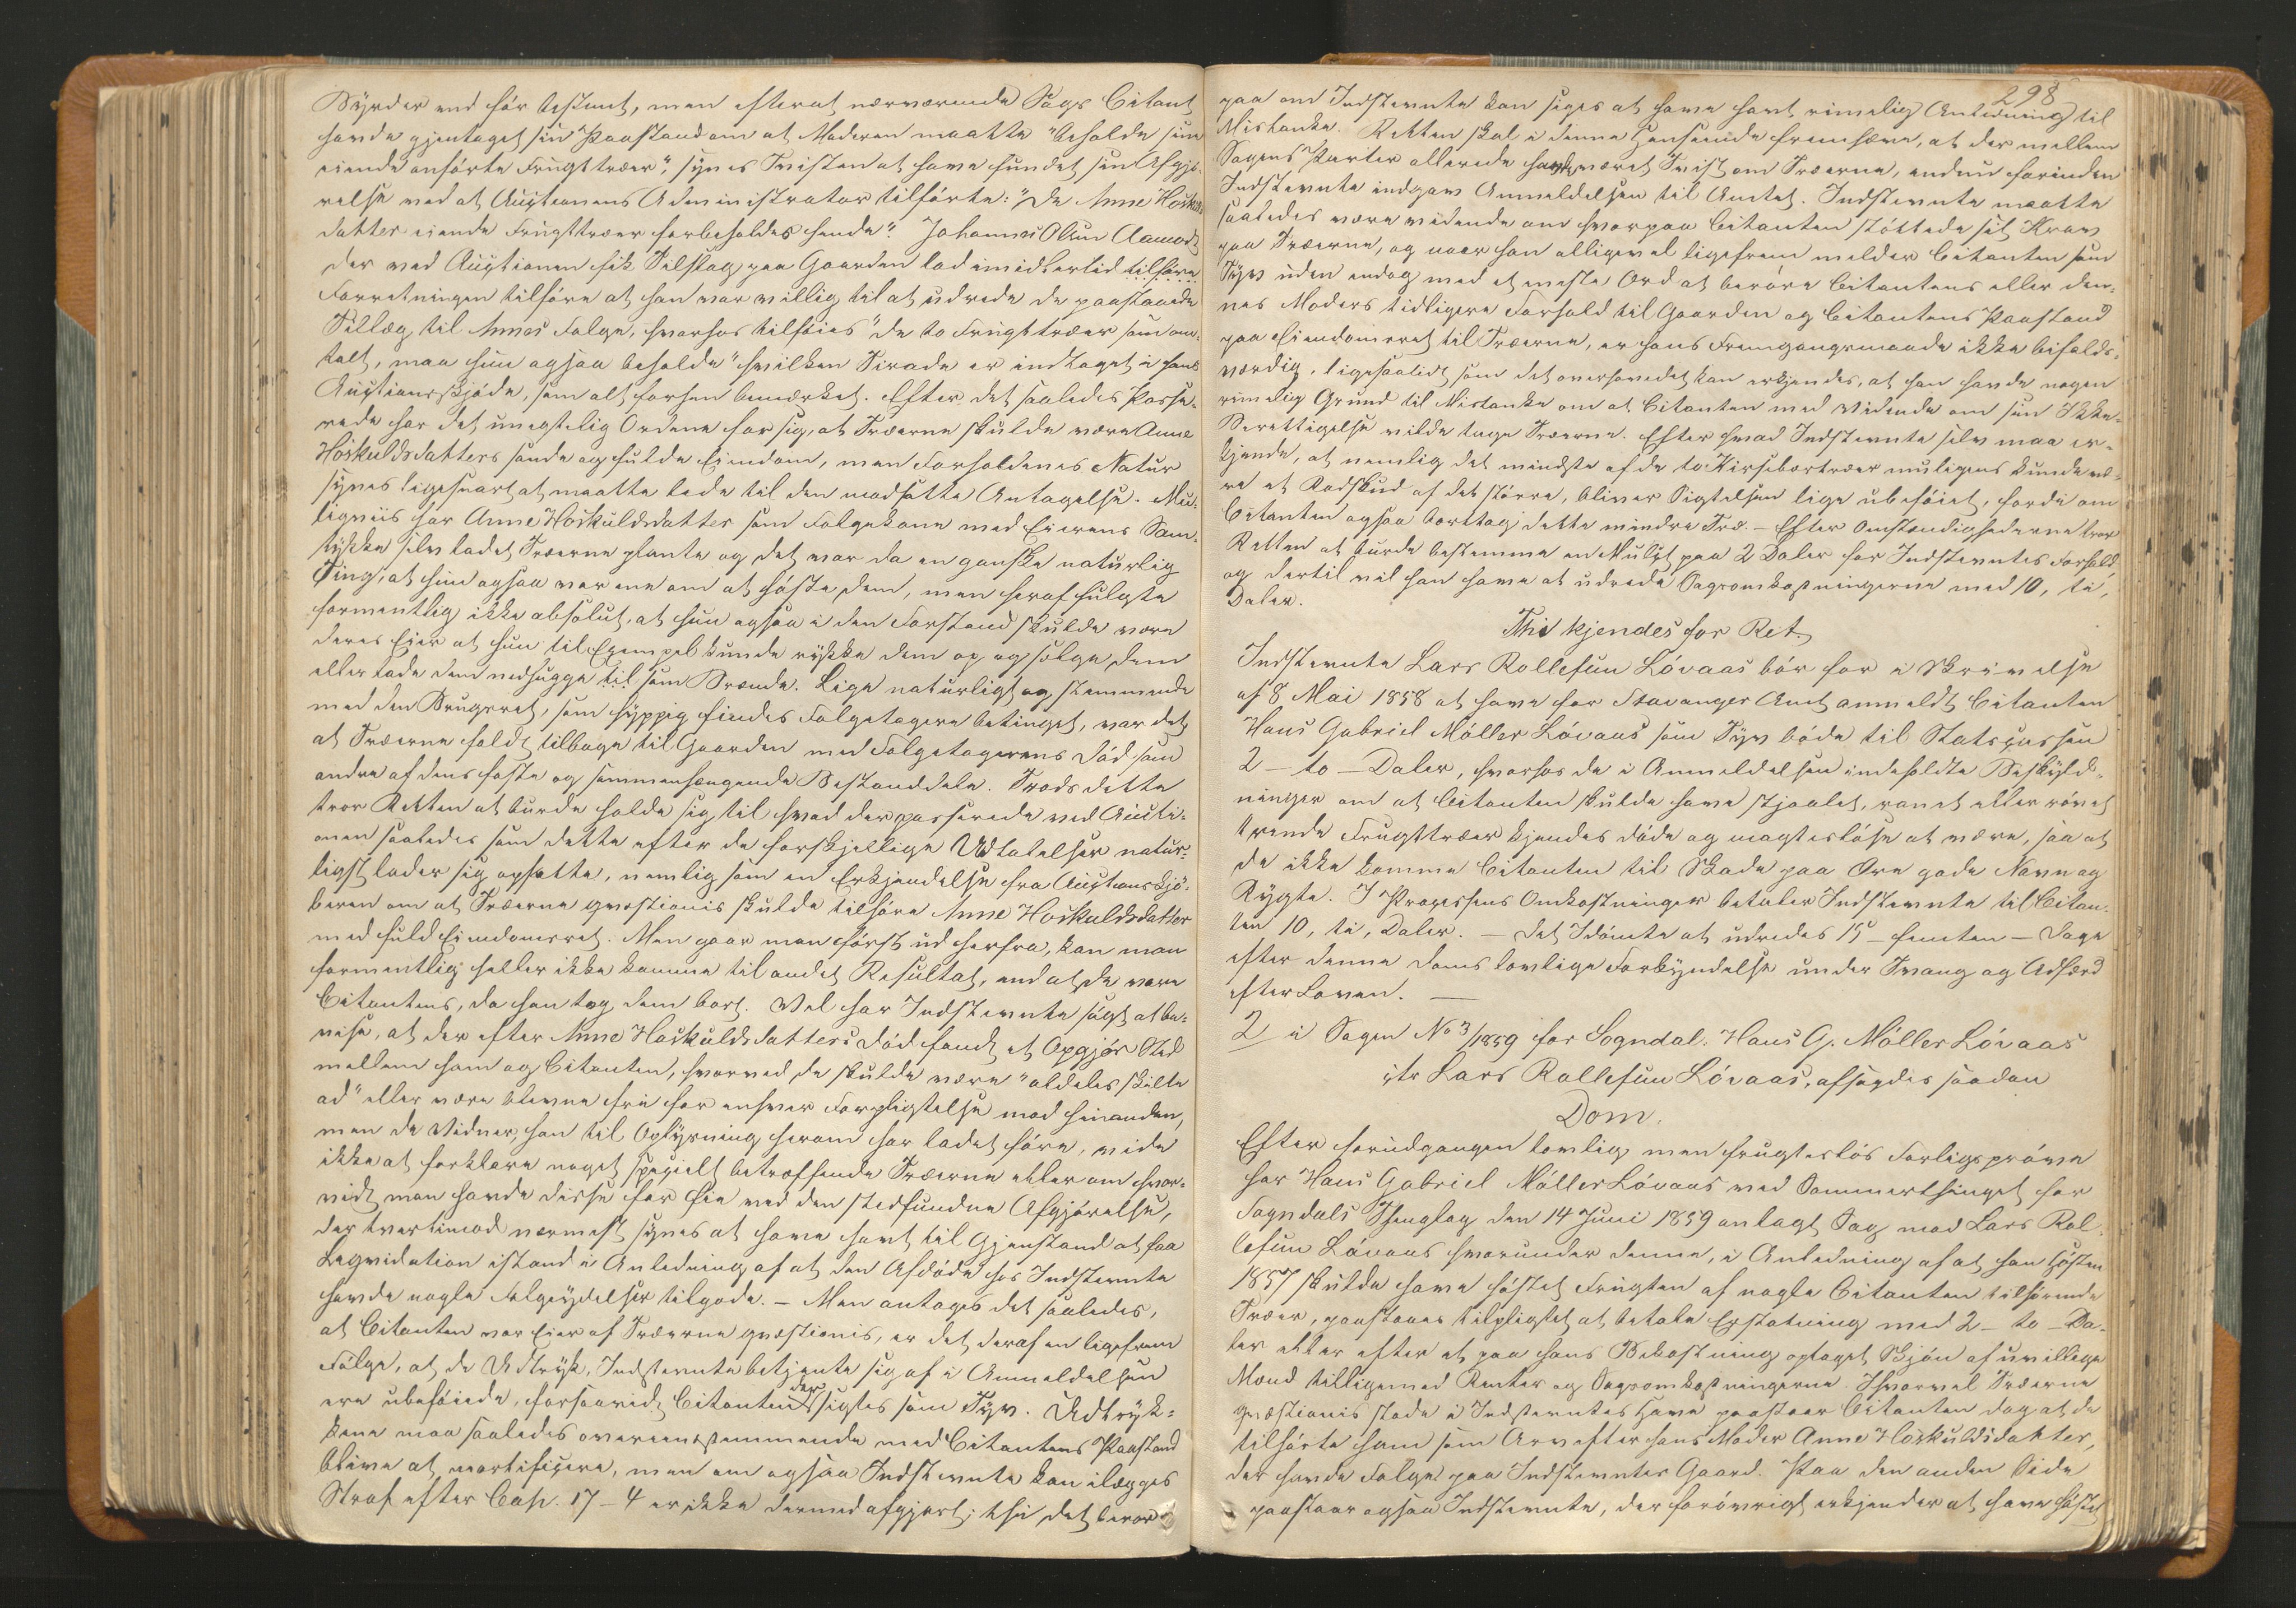 Byrder end før bestemt, men efterat nærværende Sags Citant
havde gjentaget sin Paastand om at Moderen maatte "beholde sine
eiende anførte Frugttræer", synes Tvisten at have fundet sin Afgjø-
relse ved at Auctionens Administrator tilførte: "De Anne Höskulds
datter eiende Frugttræer forbeholdes hende". Johannes Olsen Aamodt
der ved Auctionen fik Tilslag paa Gaarden lod imidlertid tilføre
Forretningen tilføre at han var villig til at udrede de paastaaede
Tillæg til Annes Folge, hvorhos tilføies "de to Frugttræer som om-
talt, maa hun ogsaa beholde" hvilken Tirade er indtaget i hans
Auctionsskjøde, som alt forhen bemærket. Efter det saaledes Passe-
rede har det unegtelig Ordene for sig, at Træerne skulde være Anne
Höskuldsdatters sande og fulde Eiendom, men Forholdenes Natur
synes ligesnart at maatte lede til den modsatte Antagelse. Mu-
ligviis har Anne Höskuldsdatter som Folgekone med Eierens Sam-
tykke selv ladet Træerne plante og det var da en ganske naturlig
Ting, at hun ogsaa var ene om at høste dem, men heraf fulgte
formentlig ikke absolut, at hun ogsaa i den Forstand skulde være
deres Eier at hun til Exempel kunde rykke dem op og sælge dem
eller lade dem nedhugge til sin Brænde. Lige naturligt og stemmende
med den Brugsret, som hyppig findes Folgetagere betinget, var det
at Træerne faldt tilbage til Gaarden med Folgetagerens Død som
andre af dens faste og sammenhængende Bestanddele. Trods dette
tror Retten at burde holde sig til hvad der passerede ved Aucti-
onen saaledes som dette efter de forskjellige Udtalelser natur-
ligst lader sig opfatte, nemlig som en Erkjendelse fra Auctionskjø-
beren om at Træerne qvæstionis skulde tilhøre Anne Höskuldsdatter
med fuld Eiendomsret. Men gaar man først ud herfra, kan man
formentlig heller ikke komme til andet Resultat, end at de vare
Citantens, da han tog dem bort. Vel har Indstevnte søgt at be-
vise, at der efter Anne Höskuldsdatters Død fandt et Opgjør Sted
mellem ham og Citanten, hvorved de skulde være "aldeles skilte
ad" eller være blevne fri for enhver Forpligtelse mod hinanden,
men de Vidner, han til Oplysning herom har ladet føre, vide
ikke at forklare noget specielt betræffende Træerne eller om hvor-
vidt man havde disse for Øie ved den stedfundne Afgjørelse,
der tvertimod nærmest synes at have havt til Gjenstand at faa
Liqvidation istand i Anledning af at den Afdøde hos Indstevnte
havde nogle Folgeydelser tilgode. – Men antages det saaledes,
at Citanten var Eier af Træerne qvæstionis, er det deraf en ligefrem
Følge, at de Udtryk, Indstevnte betjente sig af i Anmeldelsen
ere ubeføiede, forsaavidt Citanten der sigtes som Tyv. Udtryk-
kene maa saaledes overeensstemmende med Citantens Paastand
blive at mortificere, men om ogsaa Indstevnte kan ilægges
Straf efter Cap. 17 – 4 er ikke dermed afgjort; thi det beror
298
paa om Indstevnte kan siges at have havt rimelig Anledning til
Mistanke. Retten skal i denne Henseende fremhæve, at der mellem
Sagens Parter allerede havde været Tvist om Træerne, endnu forinden
Indstevnte indgav Anmeldelsen til Amtet. Indstevnte maatte
saaledes være vidende om hvorpaa Citanten støttede sit Krav
paa Træerne, og naar han alligevel ligefrem melder Citanten som
Tyv uden endog med et eneste Ord at berøre Citantens eller den-
nes Moders tidligere Forhold til Gaarden og Citantens Paastand
paa Eiendomsret til Træerne, er hans Fremgangsmaade ikke bifalds-
værdig, ligesaalidt som det overhovedet kan erkjendes, at han havde nogen
rimelig Grund til Mistanke om at Citanten med Vidende om sin Ikke-
Berettigelse vilde tage Træerne. Efter hvad Indstevnte selv maa er-
kjende, at nemlig det mindste af de to Kirsebærtræer muligens kunde væ-
re et Rodskud af det større, bliver Sigtelsen lige ubeføiet, fordi om
Citanten ogsaa borttog dette mindre Træ. – Efter Omstændighederne tror
Retten at burde bestemme en Mulct paa 2 Daler for Indstevntes Forhold,
og dertil vil han have at udrede Sagsomkostningerne med 10, ti,
Daler.
Thi kjendes for Ret,
Indstevnte Lars Rollefsen Lóvaas bør for i Skrivelse
af 8 Mai 1858 at have for Stavanger Amt anmeldt Citanten
Hans Gabriel Möller Lóvaas som Tyv bøde til Statscassen
2 – to – Daler, hvorhos de i Anmeldelsen indeholdte Beskyld-
ninger om at Citanten skulde have stjaalet, ranet eller røvet
trende Frugttræer kjendes døde og magtesløse at være, saa at
de ikke komme Citanten til Skade paa Ære gode Navn og
Rygte. I Processens Omkostninger betaler Indstevnte til Citan-
ten 10, ti, Daler. – Det Idømte at udredes 15 – femten – Dage
efter denne Doms lovlige Forkyndelse under Tvang og Adfærd
efter Loven. —
2 i Sagen No 3/1859 for Sogndal. Hans G. Möller Lóvaas
ctr Lars Rollefsen Lóvaas, afsagdes saadan
Dom.
Efter forudgangen lovlig men frugtesløs Forligsprøve
har Hans Gabriel Möller Lóvaas ved Sommerthinget for
Sogndals Thinglag den 14 Juni 1859 anlagt Sag mod Lars Rol-
lefsen Lóvaas hvorunder denne, i Anledning af at han Høsten
1857 skulde have høstet Frugten af nogle Citanten tilhørende
Træer, paastaaes tilpligtet at betale Erstatning med 2 – to – Da-
ler eller efter et paa hans Bekostning optaget Skjøn af uvillige
Mænd tilligemed Renter og Sagsomkostningerne. Ihvorvel Træerne
qvæstionis stode i Indstevntes Have paastaar Citanten dog at de
tilhørte ham som Arv efter hans Moder Anne Höskuldsdatter,
der havde Folge paa Indstevntes Gaard. Paa den anden Side
paastaar ogsaa Indstevnte, der forøvrigt erkjender at have høstet